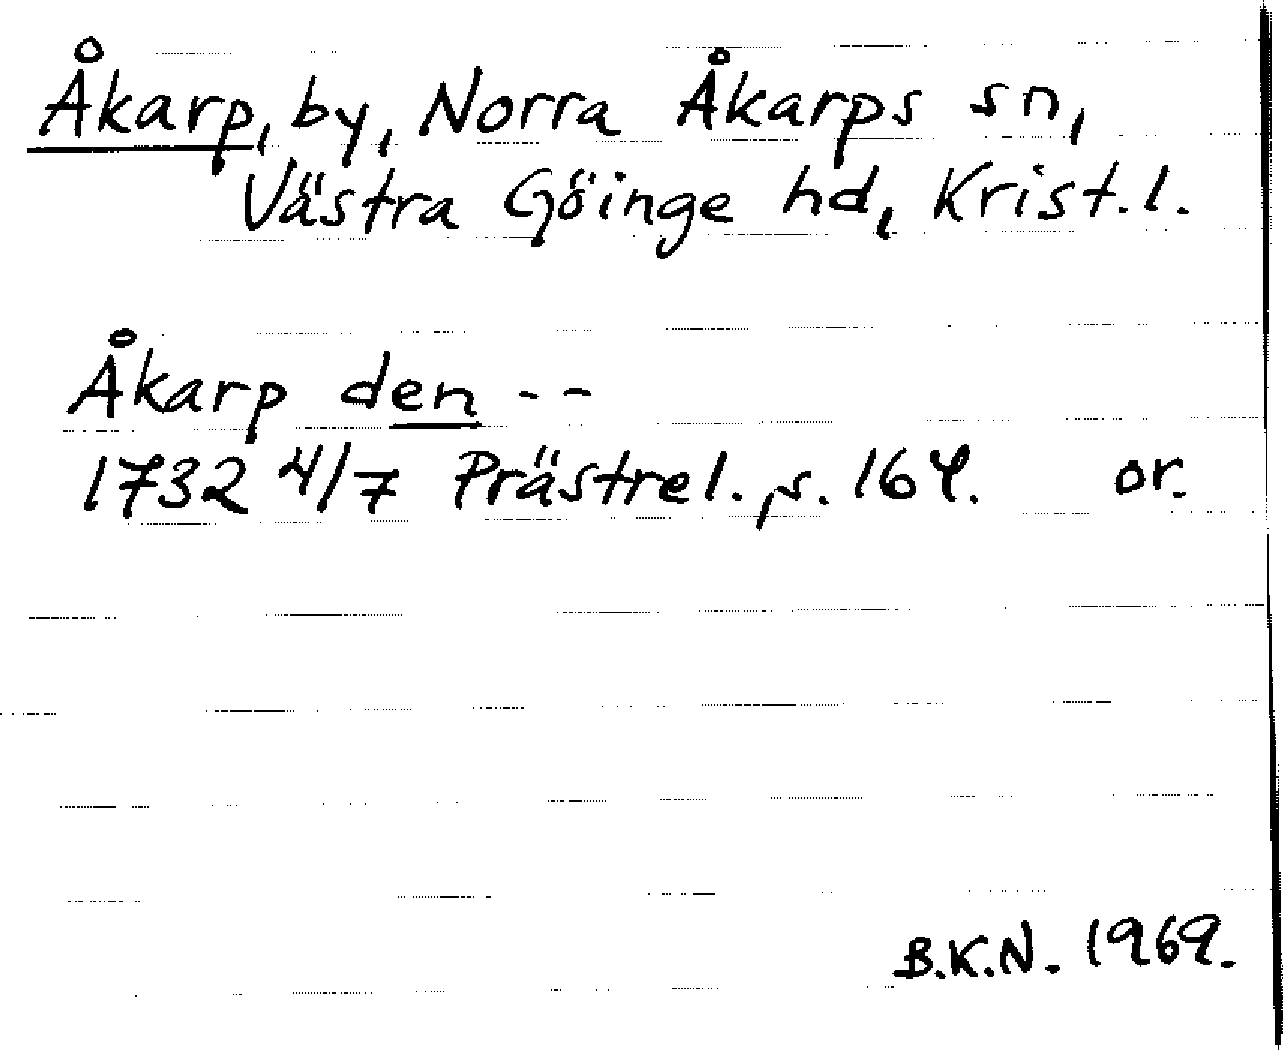 Åkarp, by, Norra Åkarps sn,
Västra Göinge hd, Krist.l.
Åkarp den --
1732 4/7 Prästrel. s. 164. or.
B.K.N. 1969.